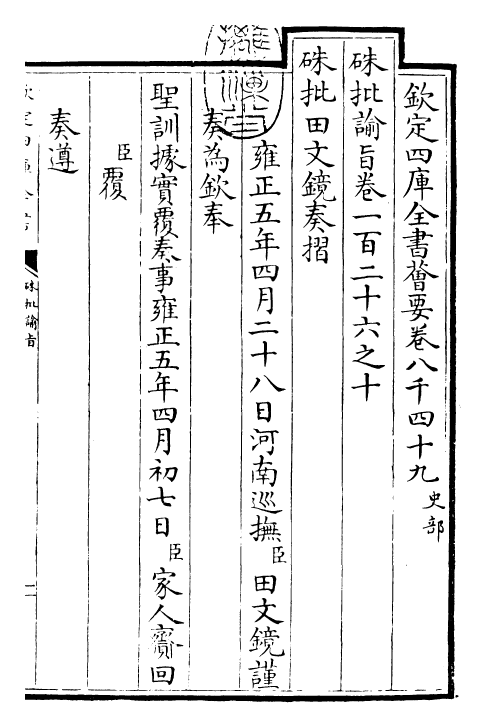 欽定四庫全書薈要卷八千四十九 史部
硃批諭旨卷一百二十六之十
硃批田文鏡奏摺
雍正五年四月二十八日河南巡撫臣田文鏡謹
奏為欽奉
聖訓據實覆奏事雍正五年四月初七日臣家人齎回
臣覆
奏遵
硃批諭旨